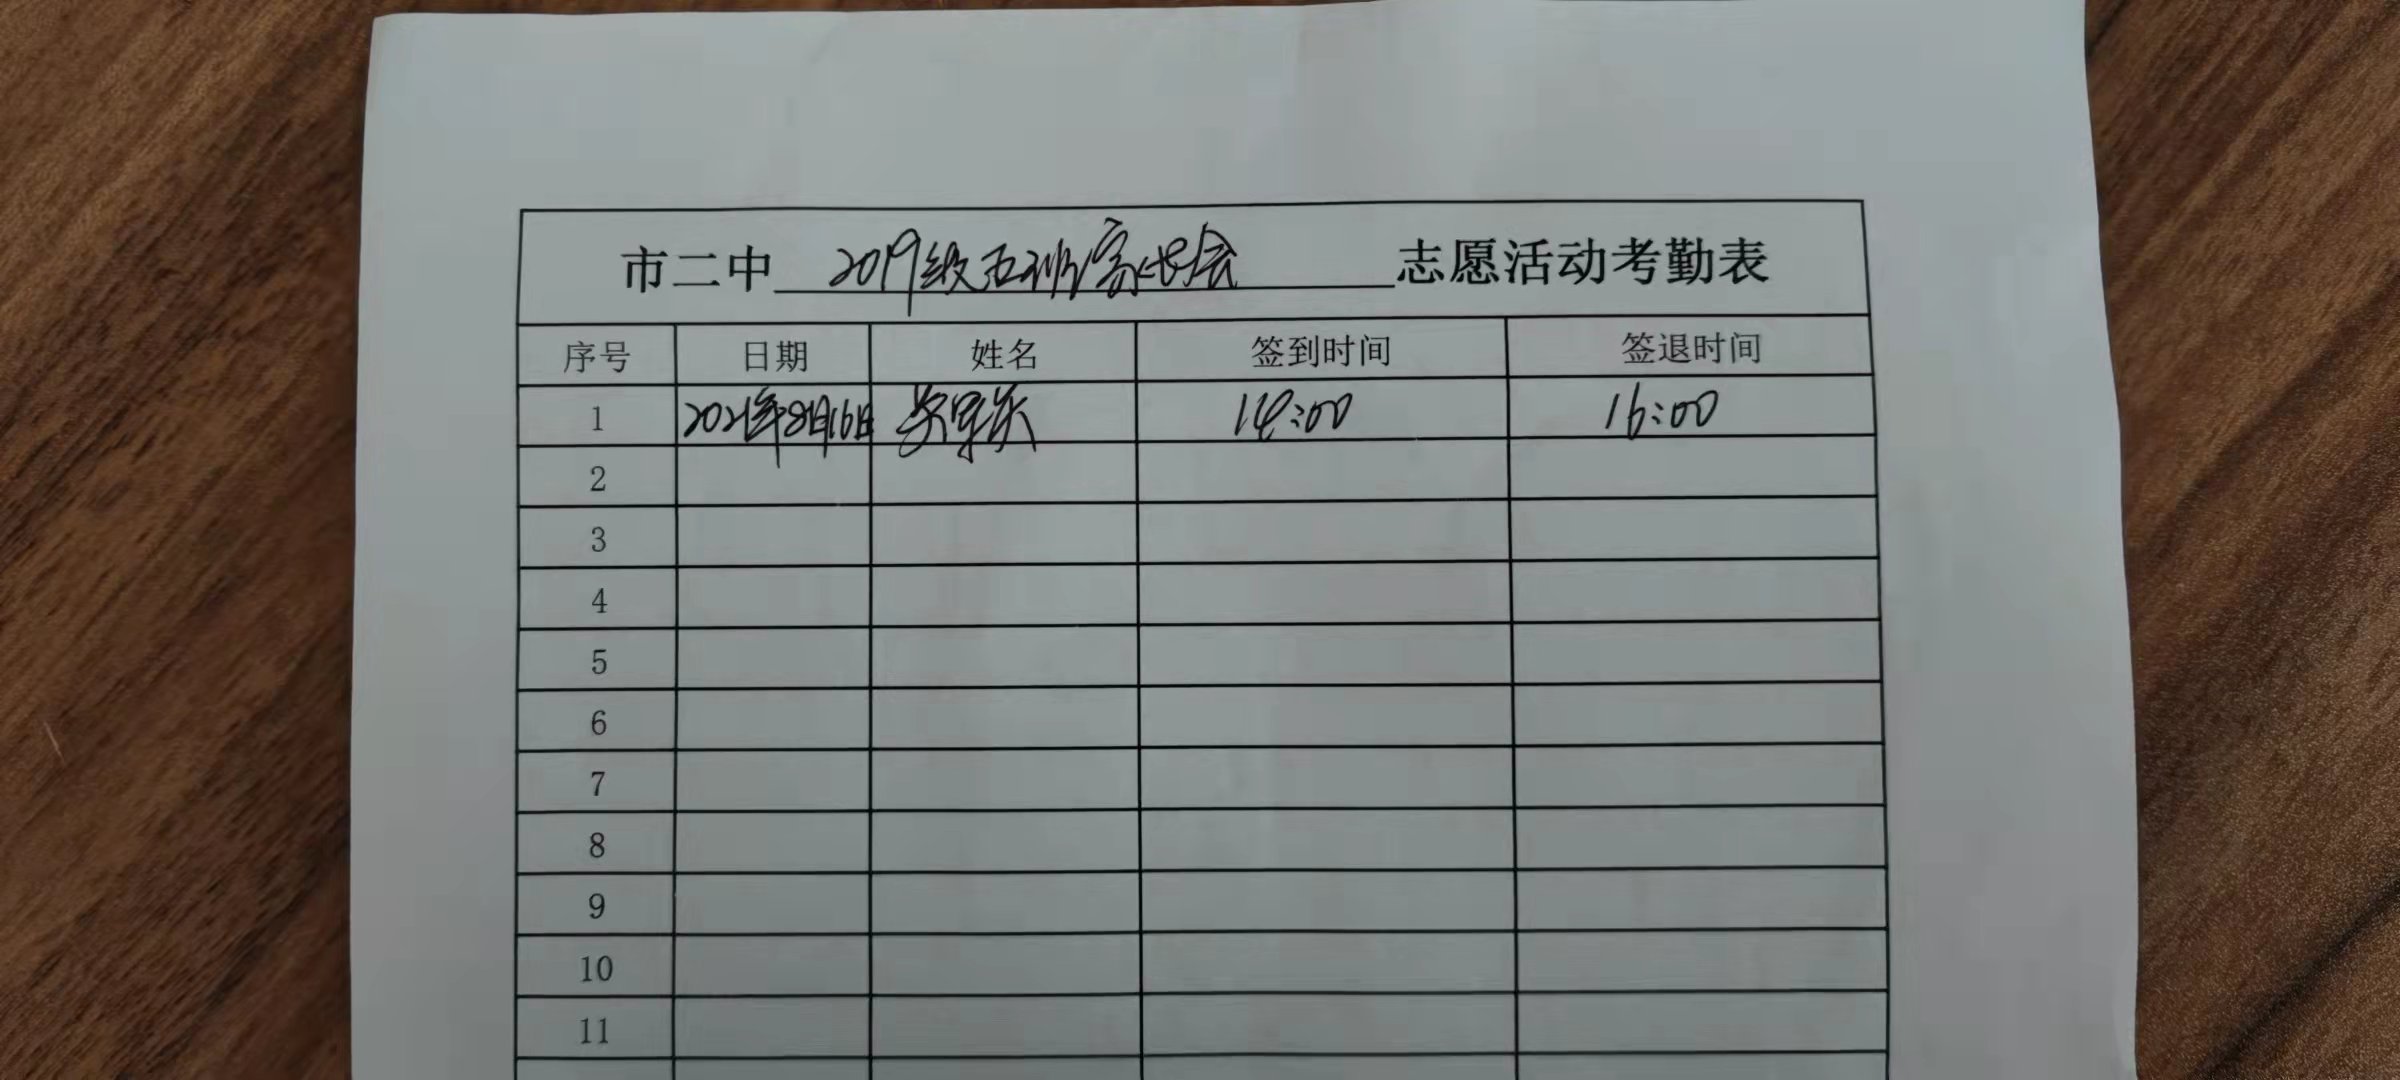 市二中 2019级五班家长会 志愿活动考勤表
序号 日期 姓名 签到时间 签退时间
1 2021年8月16日 14:00 16:00
2
3
4
5
6
7
8
9
10
11